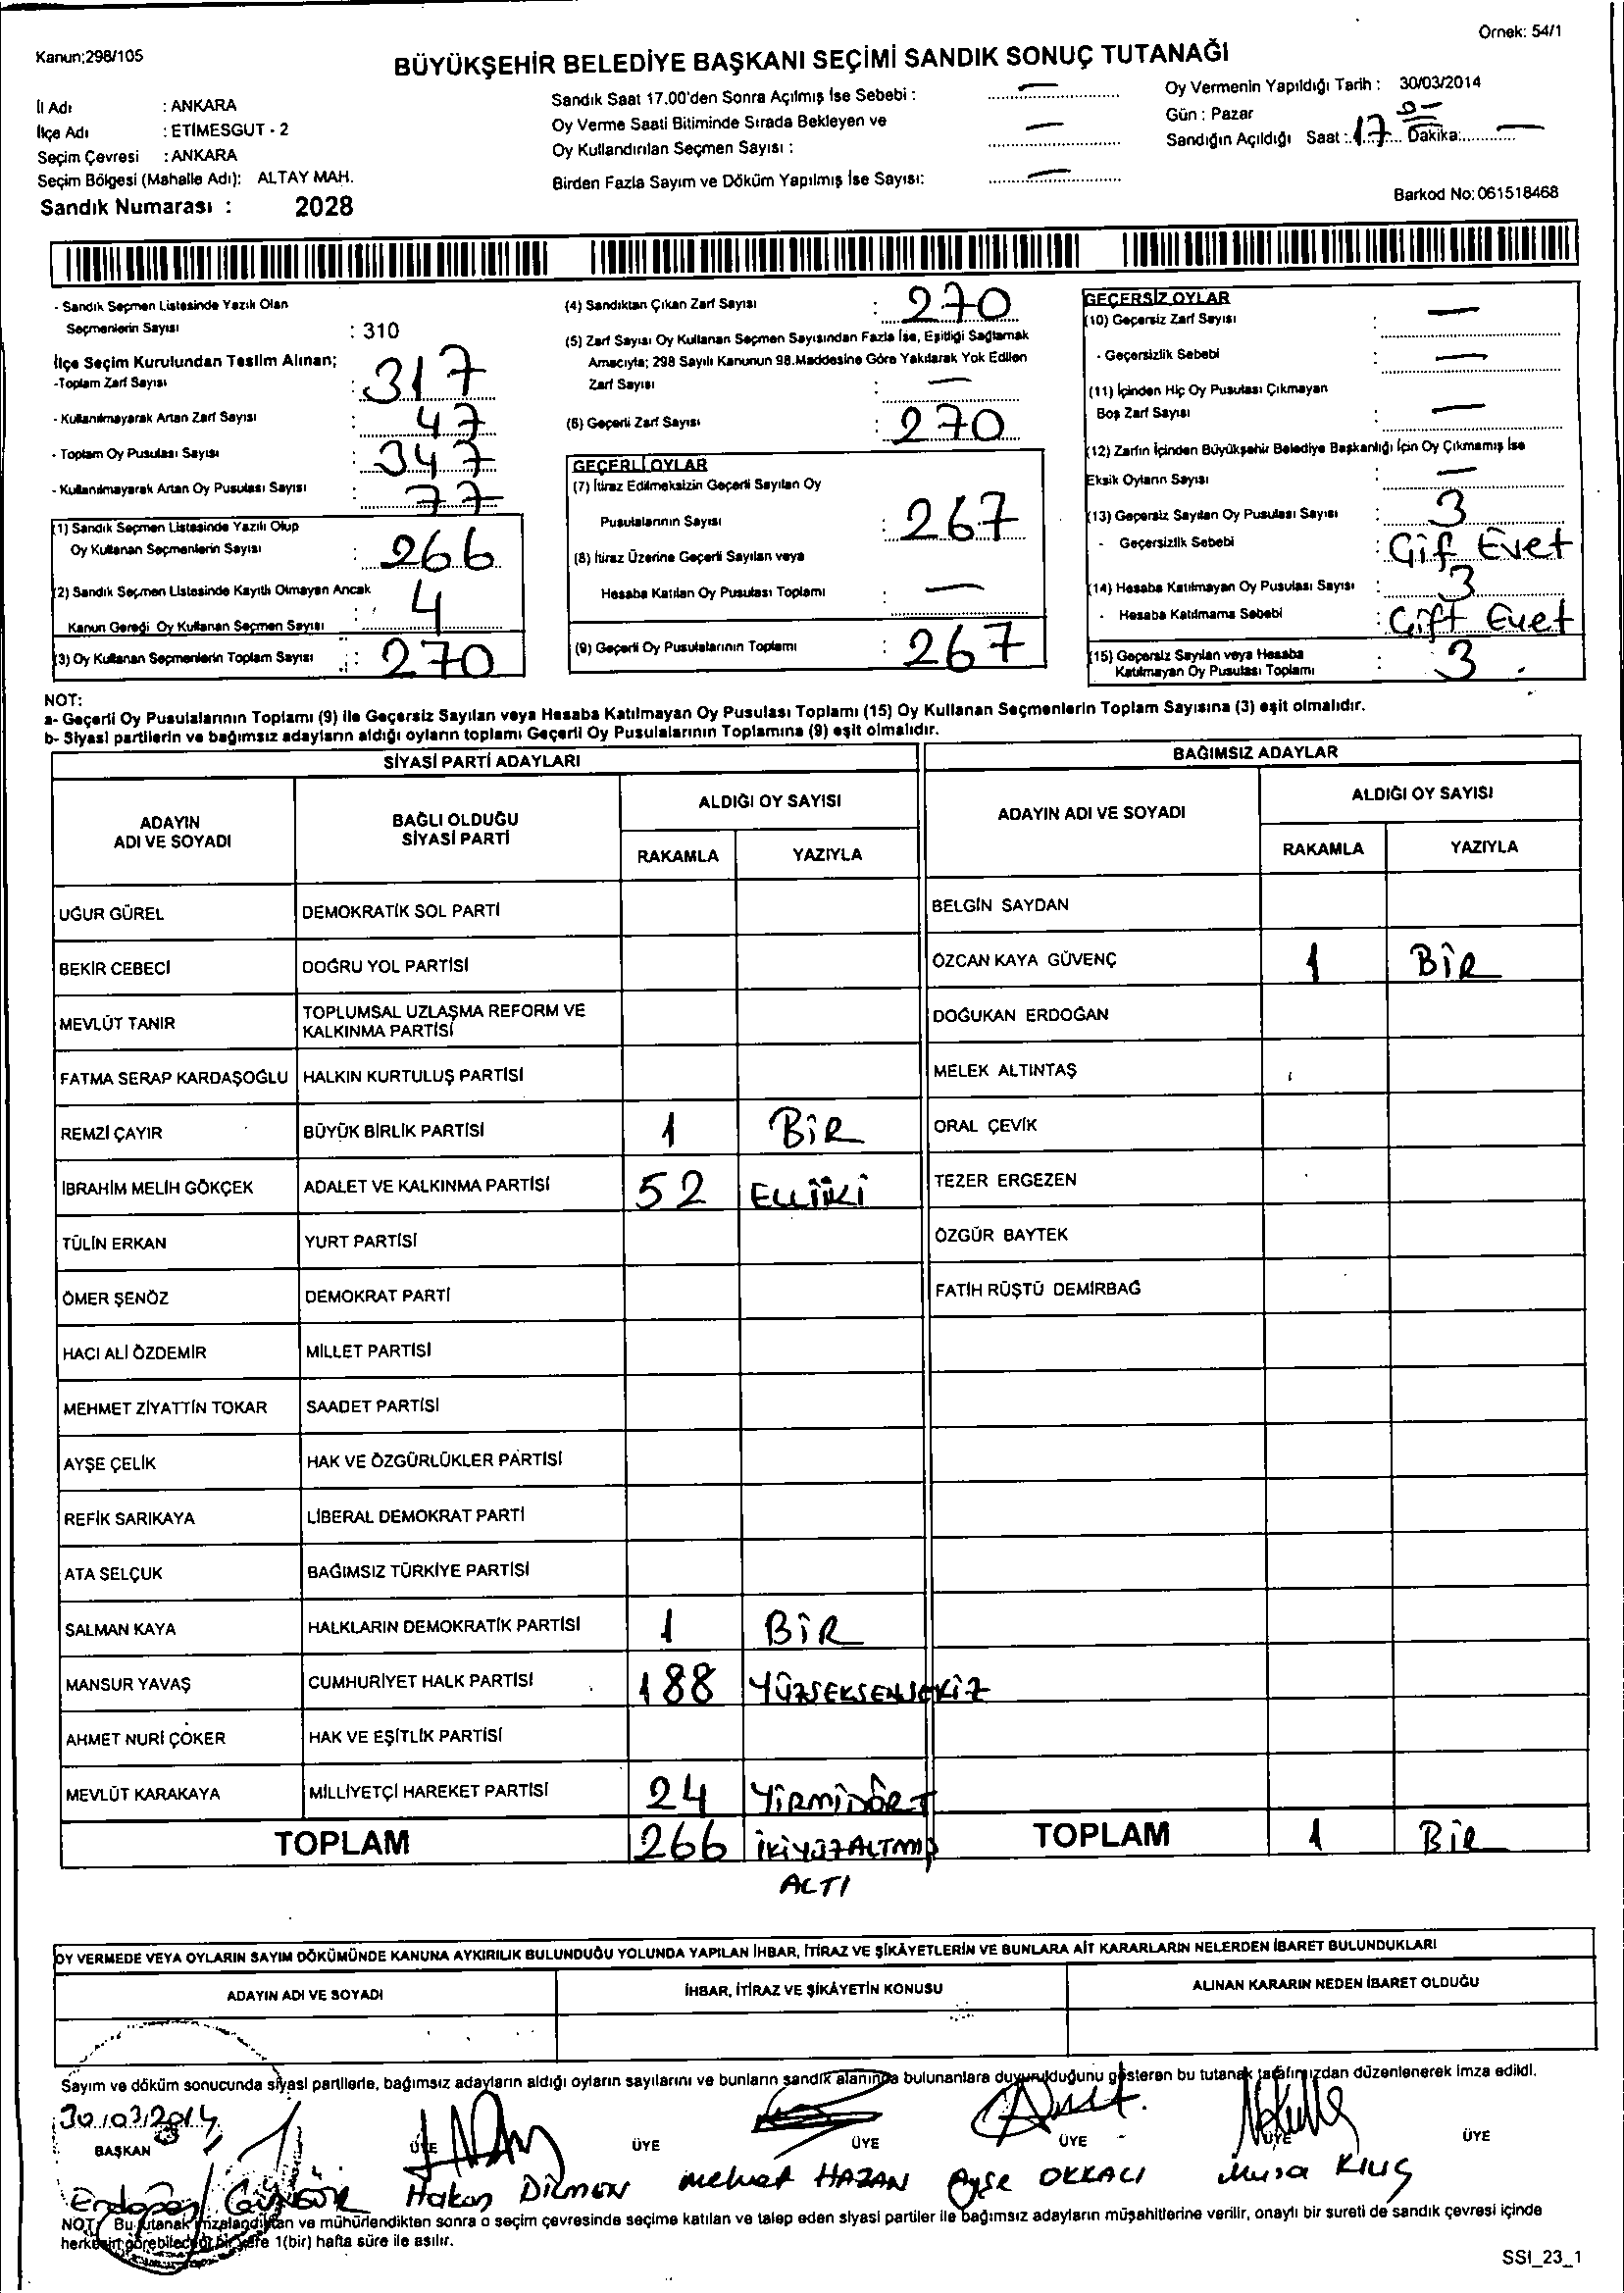 Kanun:298/105
Örnek: 54/1
BÜYÜKŞEHİR BELEDİYE BAŞKANI SEÇİMİ SANDIK SONUÇ TUTANAĞI
İl Adı : ANKARA
İlçe Adı : ETİMESGUT - 2
Seçim Çevresi : ANKARA
Seçim Bölgesi (Mahalle Adı): ALTAY MAH.
Sandık Numarası : 2028
Sandık Saat 17.00'den Sonra Açılmış İse Sebebi : —
Oy Verme Saati Bitiminde Sırada Bekleyen ve
Oy Kullandırılan Seçmen Sayısı : —
Birden Fazla Sayım ve Döküm Yapılmış İse Sayısı: —
Oy Vermenin Yapıldığı Tarih : 30/03/2014
Gün : Pazar
Sandığın Açıldığı Saat : 17 Dakika: —
Barkod No: 061518468
- Sandık Seçmen Listesinde Yazılı Olan
Seçmenlerin Sayısı : 310
İlçe Seçim Kurulundan Teslim Alınan;
-Toplam Zarf Sayısı : 317
- Kullanılmayarak Artan Zarf Sayısı : 47
- Toplam Oy Pusulası Sayısı : 347
- Kullanılmayarak Artan Oy Pusulası Sayısı : 77
(1) Sandık Seçmen Listesinde Yazılı Olup
Oy Kullanan Seçmenlerin Sayısı : 266
(2) Sandık Seçmen Listesinde Kayıtlı Olmayan Ancak
Kanun Gereği Oy Kullanan Seçmen Sayısı : 4
(3) Oy Kullanan Seçmenlerin Toplam Sayısı : 270
(4) Sandıktan Çıkan Zarf Sayısı : 270
(5) Zarf Sayısı Oy Kullanan Seçmen Sayısından Fazla İse, Eşitliği Sağlamak
Amacıyla; 298 Sayılı Kanunun 98.Maddesine Göre Yakılarak Yok Edilen
Zarf Sayısı : —
(6) Geçerli Zarf Sayısı : 270
GEÇERLİ OYLAR
(7) İtiraz Edilmeksizin Geçerli Sayılan Oy
Pusulalarının Sayısı : 267
(8) İtiraz Üzerine Geçerli Sayılan veya
Hesaba Katılan Oy Pusulası Toplamı : —
(9) Geçerli Oy Pusulalarının Toplamı : 267
GEÇERSİZ OYLAR
(10) Geçersiz Zarf Sayısı : —
- Geçersizlik Sebebi : —
(11) İçinden Hiç Oy Pusulası Çıkmayan
Boş Zarf Sayısı : —
(12) Zarfın İçinden Büyükşehir Belediye Başkanlığı İçin Oy Çıkmamış İse
Eksik Oyların Sayısı : —
(13) Geçersiz Sayılan Oy Pusulası Sayısı : 3
- Geçersizlik Sebebi : Çif Evet
(14) Hesaba Katılmayan Oy Pusulası Sayısı : 3
- Hesaba Katılmama Sebebi : Çift Evet
(15) Geçersiz Sayılan veya Hesaba
Katılmayan Oy Pusulası Toplamı : 3
NOT:
a- Geçerli Oy Pusulalarının Toplamı (9) ile Geçersiz Sayılan veya Hesaba Katılmayan Oy Pusulası Toplamı (15) Oy Kullanan Seçmenlerin Toplam Sayısına (3) eşit olmalıdır.
b- Siyasi partilerin ve bağımsız adayların aldığı oyların toplamı Geçerli Oy Pusulalarının Toplamına (9) eşit olmalıdır.
SİYASİ PARTİ ADAYLARI
ADAYIN ADI VE SOYADI
BAĞLI OLDUĞU SİYASİ PARTİ
ALDIĞI OY SAYISI
RAKAMLA YAZIYLA
UĞUR GÜREL DEMOKRATİK SOL PARTİ
BEKİR CEBECİ DOĞRU YOL PARTİSİ
MEVLÜT TANIR TOPLUMSAL UZLAŞMA REFORM VE KALKINMA PARTİSİ
FATMA SERAP KARDAŞOĞLU HALKIN KURTULUŞ PARTİSİ
REMZİ ÇAYIR BÜYÜK BİRLİK PARTİSİ 1 BİR
İBRAHİM MELİH GÖKÇEK ADALET VE KALKINMA PARTİSİ 52 ELLİİKİ
TÜLİN ERKAN YURT PARTİSİ
ÖMER ŞENÖZ DEMOKRAT PARTİ
HACI ALİ ÖZDEMİR MİLLET PARTİSİ
MEHMET ZİYATTİN TOKAR SAADET PARTİSİ
AYŞE ÇELİK HAK VE ÖZGÜRLÜKLER PARTİSİ
REFİK SARIKAYA LİBERAL DEMOKRAT PARTİ
ATA SELÇUK BAĞIMSIZ TÜRKİYE PARTİSİ
SALMAN KAYA HALKLARIN DEMOKRATİK PARTİSİ 1 BİR
MANSUR YAVAŞ CUMHURİYET HALK PARTİSİ 188 YÜZSEKSENSEKİZ
AHMET NURİ ÇÖKER HAK VE EŞİTLİK PARTİSİ
MEVLÜT KARAKAYA MİLLİYETÇİ HAREKET PARTİSİ 24 YİRMİDÖRT
TOPLAM 266 İKİYÜZALTMIŞ
ALTI
BAĞIMSIZ ADAYLAR
ADAYIN ADI VE SOYADI
ALDIĞI OY SAYISI
RAKAMLA YAZIYLA
BELGİN SAYDAN
ÖZCAN KAYA GÜVENÇ 1 BİR
DOĞUKAN ERDOĞAN
MELEK ALTINTAŞ
ORAL ÇEVİK
TEZER ERGEZEN
ÖZGÜR BAYTEK
FATİH RÜŞTÜ DEMİRBAĞ
TOPLAM 1 BİR
OY VERMEDE VEYA OYLARIN SAYIM DÖKÜMÜNDE KANUNA AYKIRILIK BULUNDUĞU YOLUNDA YAPILAN İHBAR, İTİRAZ VE ŞİKÂYETLERİN VE BUNLARA AİT KARARLARIN NELERDEN İBARET BULUNDUKLARI
ADAYIN ADI VE SOYADI İHBAR, İTİRAZ VE ŞİKÂYETİN KONUSU ALINAN KARARIN NEDEN İBARET OLDUĞU
Sayım ve döküm sonucunda siyasi partilerle, bağımsız adayların aldığı oyların sayılarını ve bunların sandık alanında bulunanlara duyurulduğunu gösteren bu tutanak tarafımızdan düzenlenerek imza edildi.
30/03/2014
BAŞKAN ÜYE ÜYE ÜYE ÜYE ÜYE ÜYE
Erdoğan GÜNGÖR Hakan DİKMEN Mehmet HAZAN Ayşe OKKALI Musa KILIÇ
NOT: Bu tutanak imzalandıktan ve mühürlendikten sonra o seçim çevresinde seçime katılan ve talep eden siyasi partiler ile bağımsız adayların müşahitlerine verilir, onaylı bir sureti de sandık çevresi içinde
herkesin görebileceği bir yere 1(bir) hafta süre ile asılır.
SSI_23_1